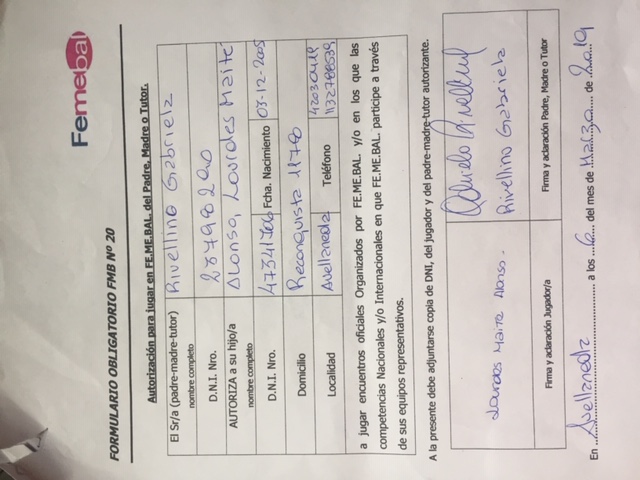 Femebal
FORMULARIO OBLIGATORIO FMB Nº 20
Autorización para jugar en FE.ME.BAL. del Padre, Madre o Tutor.
El Sr/a (padre-madre-tutor) Rivellino Gabriela
nombre completo
D.N.I. Nro. 28798290
AUTORIZA a su hijo/a Alonso, Lourdes Maite
nombre completo
D.N.I. Nro. Fcha. Nacimiento 03-12-2005
Domicilio Reconquista 1178
Localidad Avellaneda Teléfono 1132788639
a jugar encuentros oficiales Organizados por FE.ME.BAL. y/o en los que las
competencias Nacionales y/o Internacionales en que FE.ME.BAL. participe a través
de sus equipos representativos.
A la presente debe adjuntarse copia de DNI, del jugador y del padre-madre-tutor autorizante.
Lourdes Maite Alonso. Rivellino Gabriela
Firma y aclaración Jugador/a Firma y aclaración Padre, Madre o Tutor
En Avellaneda a los 6 del mes de Marzo de 2019